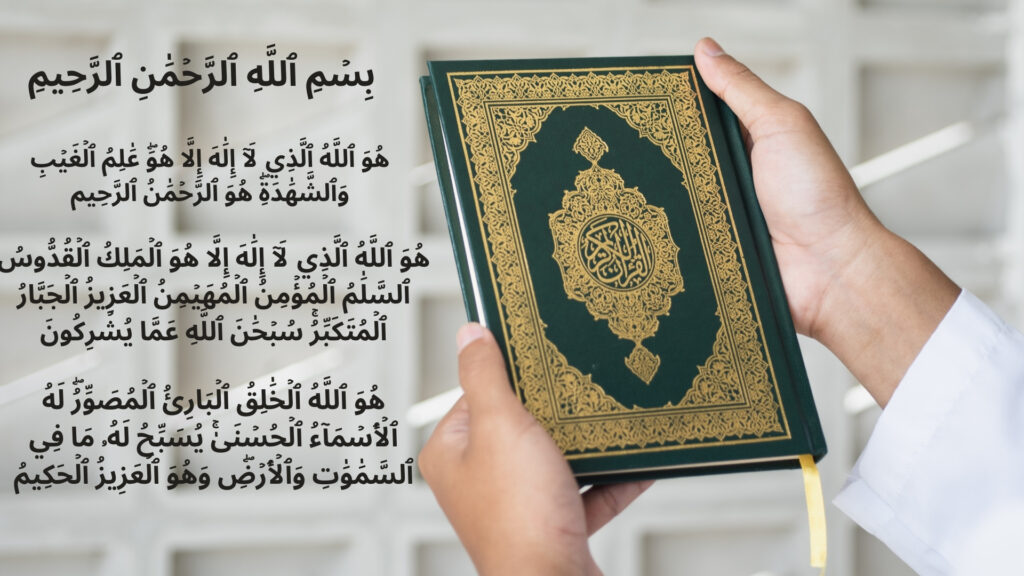 بِسۡمِ ٱللَّهِ ٱلرَّحۡمَٰنِ ٱلرَّحِيمِ
هُوَ ٱللَّهُ ٱلَّذِي لَآ إِلَٰهَ إِلَّا هُوَۖ عَٰلِمُ ٱلۡغَيۡبِ
وَٱلشَّهَٰدَةِۖ هُوَ ٱلرَّحۡمَٰنُ ٱلرَّحِيم
هُوَ ٱللَّهُ ٱلَّذِي لَآ إِلَٰهَ إِلَّا هُوَ ٱلۡمَلِكُ ٱلۡقُدُّوسُ
ٱلسَّلَٰمُ ٱلۡمُؤۡمِنُ ٱلۡمُهَيۡمِنُ ٱلۡعَزِيزُ ٱلۡجَبَّارُ
ٱلۡمُتَكَبِّرُۚ سُبۡحَٰنَ ٱللَّهِ عَمَّا يُشۡرِكُونَ
هُوَ ٱللَّهُ ٱلۡخَٰلِقُ ٱلۡبَارِئُ ٱلۡمُصَوِّرُۖ لَهُ
ٱلۡأَسۡمَآءُ ٱلۡحُسۡنَىٰۚ يُسَبِّحُ لَهُۥ مَا فِي
ٱلسَّمَٰوَٰتِ وَٱلۡأَرۡضِۖ وَهُوَ ٱلۡعَزِيزُ ٱلۡحَكِيمُ
القرآن الكريم